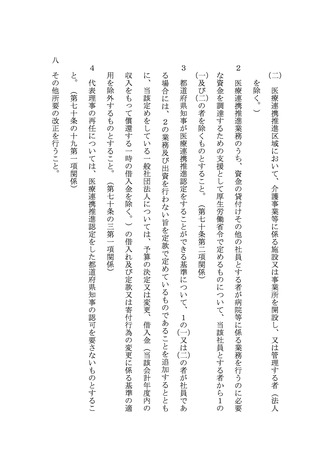 ㈡　医療連携推進区域において、介護事業等に係る施設又は事業所を開設し、又は管理する者（法人
を除く。）
２　医療連携推進業務のうち、資金の貸付けその他の社員とする者が病院等に係る業務を行うのに必要
な資金を調達するための支援として厚生労働省令で定めるものについて、当該社員とする者から１の
㈠及び㈡の者を除くものとすること。（第七十条第二項関係）
３　都道府県知事が医療連携推進認定をすることができる基準について、１の㈠又は㈡の者が社員であ
る場合には、２の業務及び出資を行わない旨を定款で定めているものであることを追加するととも
に、当該定めをしている一般社団法人については、予算の決定又は変更、借入金（当該会計年度内の
収入をもって償還する一時の借入金を除く。）の借入れ及び定款又は寄付行為の変更に係る基準の適
用を除外するものとすること。（第七十条の三第一項関係）
４　代表理事の再任については、医療連携推進認定をした都道府県知事の認可を要さないものとするこ
と。（第七十条の十九第一項関係）
八　その他所要の改正を行うこと。